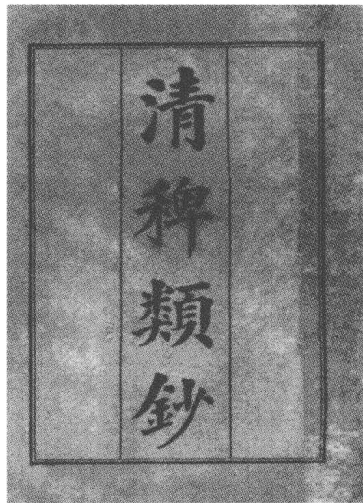 清稗類鈔